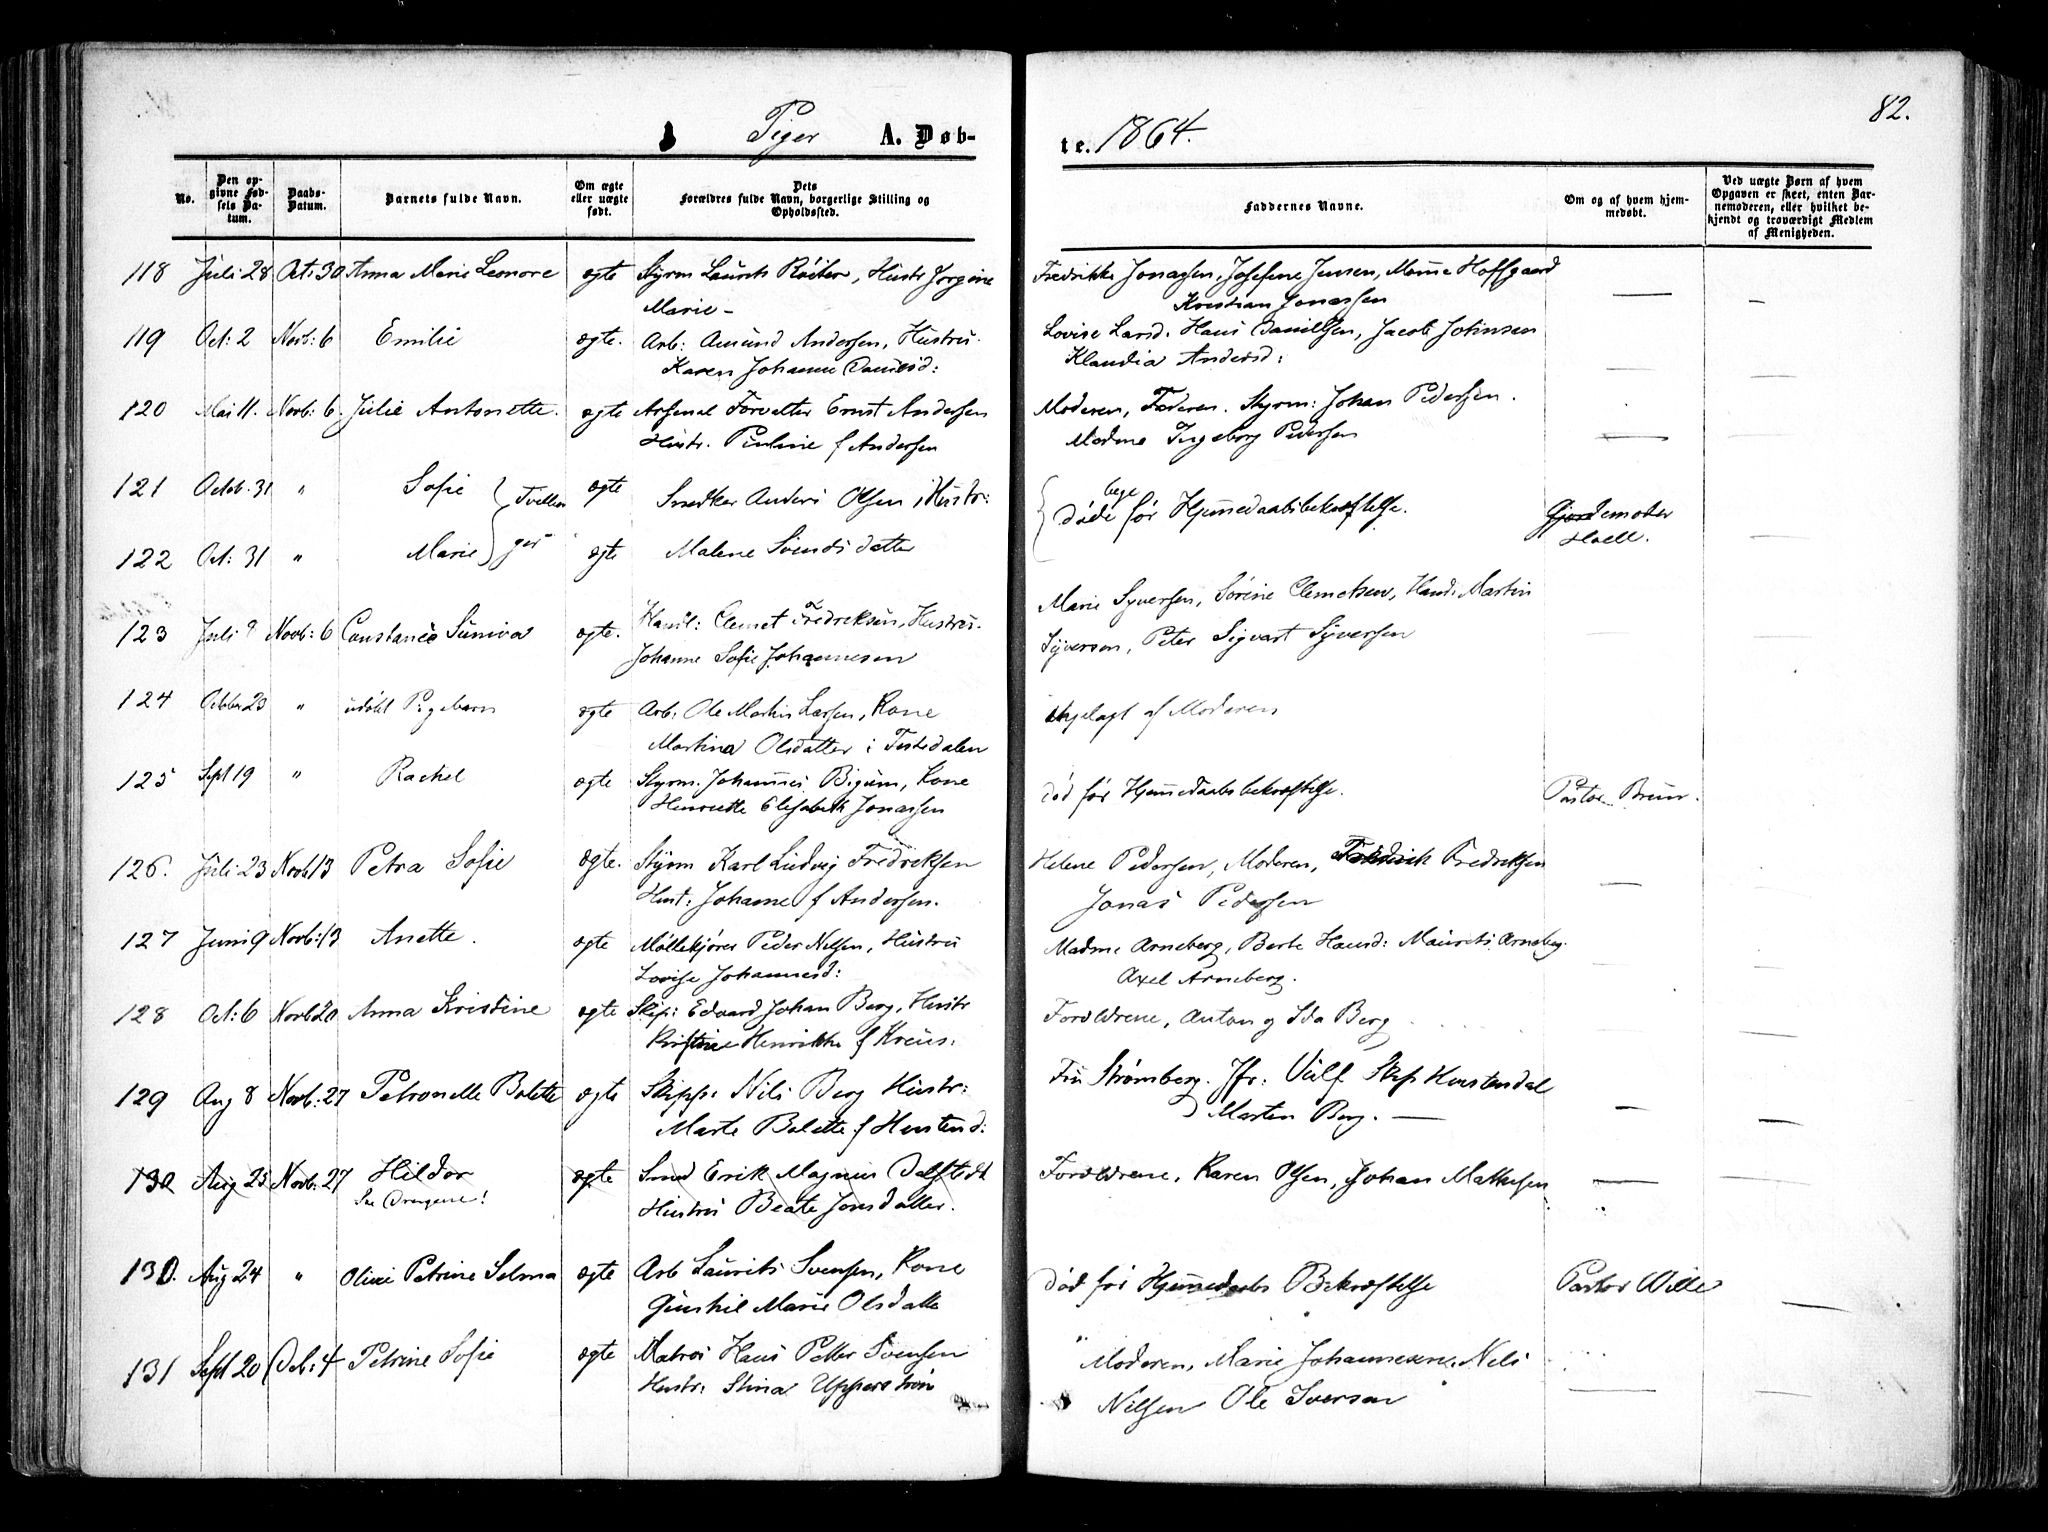 82.
Piger A. Døb-
te. 1864.
No.
Den op-
givne Fød-
sels Da-
tum.
Daabs-
Datum.
Barnets fulde Navn.
Om ægte
eller uægte
født.
Dets
Forældres fulde Navn, borgerlige Stilling og
Opholdssted.
Faddernes Navne.
Om og af hvem hjem-
medøbt.
Ved uægte Børn af hvem
Opgaven er skeet, enten Bar-
nemoderen, eller hvilket be-
kjendt og troværdigt Medlem
af Menigheden.
118 Juli 28 Oct: 30 Anna Marie Leonore ægte Styrm Laurits Röiter, Hustr Jorgine
Marie -
Fredrikke Jonassen, Josefine Jensen, Hoffgaard
Kristian Jonassen
119 Oct: 2 Novb: 6 Emilie ægte. Arb: Amund Andersen, Hustru.
Karen Johanne Danielsd:
Lovise Larsd. Hans Danielsen, Jacob Johnsen
Klaudia Andersd:
120 Mai 11. Novb: 6. Julie Antonette. ægte Arsenal Forvalter Ernst Andersen
Hustr. Pauline f Andersen
Moderen, Faderen. Styrm: Johan Pedersen.
Madme Ingeborg Pedersen
121 Octob. 31 " Sofie } Tvillin ægte Snedker Anders Olsen, Hustr:
122 Oct: 31 " Marie } ger ægte Malene Svends datter
bege
døde før Hjemmedaabsbekræftelse.
Gjordemoder
Hoell.
123 Juli 9 Novb: 6 Constance Suniva ægte. Handl: Clemet Fredriksen, Hustru.
Johanne Sofie Johannesen
Marie Syversen, Sørine Clemetsen, Handl Martin
Syversen, Peter Sigvart Syversen
124 October 23 " udøbt Pigebarn ægte Arb: Ole Martin Larsen, Kone
Martina Olsdatter i Tistedalen
af Moderen
125 Sept 19 " Rachel ægte Styrm. Johannes Bigum, Kone
Henriette Elisabeth Jonassen
død før Hjemmedaabsbekræftelse. Pastor Bruun.
126. Juli 23 Novb 13 Petra Sofie ægte. Styrm Karl Ludvig Fredriksen
Hust: Johanne f Andersen.
Helene Pedersen, Moderen, Fredrik Fredriksen
Jonas Pedersen
127 Juni 9 Novb: 13 Anette. ægte Møllekjører Peder Nelsen, Hustru
Lovise Johannesd:
Madme Arneberg, Berte Hansd: Maurits Arneberg.
Axel Arneberg.
128 Oct: 6 Novb 20 Anna Kristine ægte Skip: Edvard Johan Berg, Hustr
Kristine Henrikke f Kreus:
Forældrene, Anton og Ida Berg
129 Aug 8 Novb: 27 Petronelle Bolette ægte Skipp: Nils Berg Hustr:
Marte Bolette f Hustend:
Fru Strømberg. Jfr: Vulf Skip Hustendal
Marten Berg. —
130 Aug 25 Novb. 27 Hildor ægte Smed Erik Magnus Dalstedt
Se Drengene!
Hustru Beate Jonsdatter.
Forældrene, Karen Olsen, Johan Mathisen
130. Aug 24 " Oline Petrine Selma ægte Arb Laurits Svensen, Kone
Gunhil Marie Olsdatte
død før Hjemmedaabs Bekræftelse Pastor Wille
131 Sept 20 Decb: 4 Petrine Sofie ægte Matros Hans Petter Svensen
Hustr: Stina Upperstrøm
Moderen, Marie Johannesen, Nels
Nilsen Ole Iversen